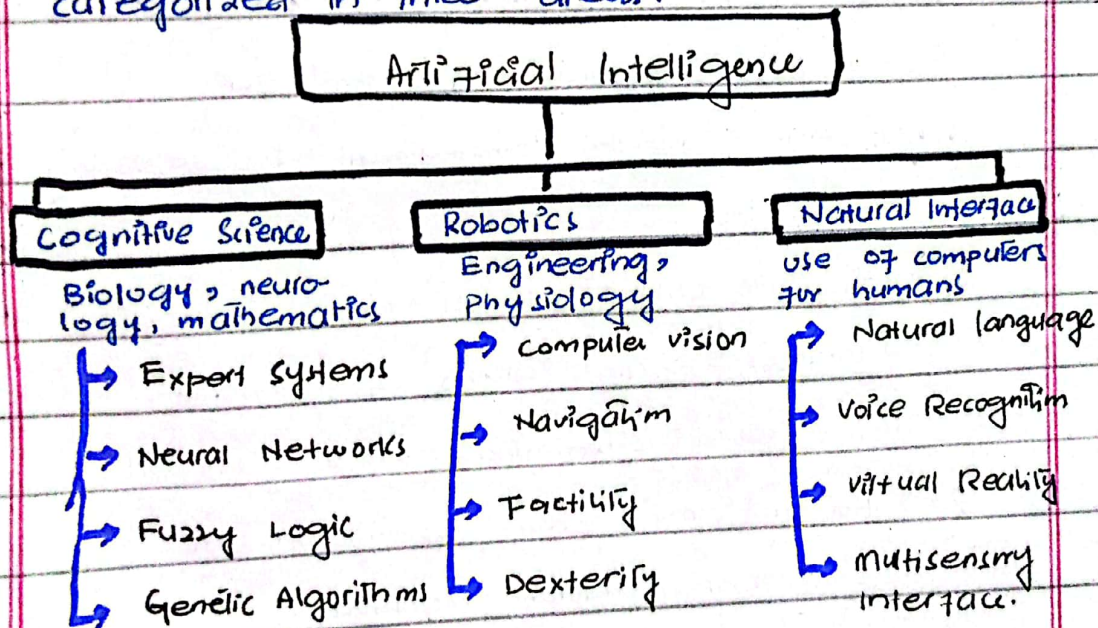 categorized in three areas.
Artificial Intelligence
Cognitive Science
Biology, neuro-
logy, mathematics
Expert Systems
Neural Networks
Fuzzy Logic
Genetic Algorithms
Robotics
Engineering,
Physiology
Computer vision
Navigation
Factility
Dexterity
Natural Interface
use of computers
for humans
Natural language
Voice Recognition
Virtual Reality
Mutisensory
interface.